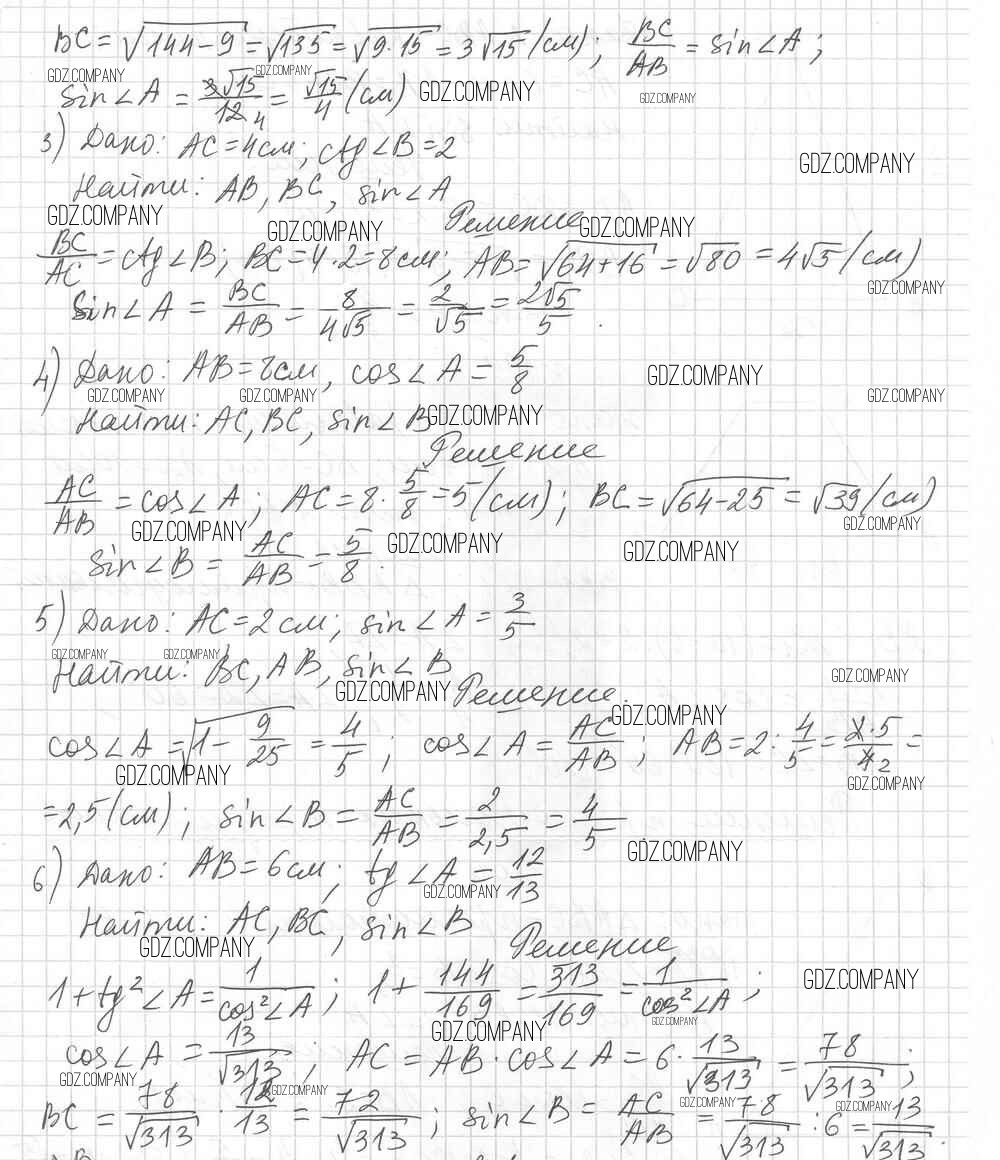 BC = √(144−9) = √135 = √(9·15) = 3√15 (см); BC/AB = sin∠A;
GDZ.COMPANY GDZ.COMPANY
sin∠A = 3√15/12 4 = √15/4 (см) GDZ.COMPANY GDZ.COMPANY
3) Дано: AC = 4см; ctg∠B = 2
GDZ.COMPANY
Найти: AB, BC, sin∠A
GDZ.COMPANY GDZ.COMPANY Решение GDZ.COMPANY
BC/AC = ctg∠B; BC = 4·2 = 8см; AB = √(64+16) = √80 = 4√5 (см)
GDZ.COMPANY
sin∠A = BC/AB = 8/4√5 = 2/√5 = 2√5/5.
4) Дано: AB = 8см, cos∠A = 5/8
GDZ.COMPANY GDZ.COMPANY GDZ.COMPANY GDZ.COMPANY
Найти: AC, BC, sin∠B GDZ.COMPANY
Решение
AC/AB = cos∠A; AC = 8·5/8 = 5 (см); BC = √(64−25) = √39 (см)
GDZ.COMPANY GDZ.COMPANY GDZ.COMPANY GDZ.COMPANY
sin∠B = AC/AB = 5/8.
5) Дано: AC = 2см; sin∠A = 3/5
GDZ.COMPANY GDZ.COMPANY GDZ.COMPANY
Найти: BC, AB, sin∠B
GDZ.COMPANY Решение.
GDZ.COMPANY
cos∠A = √(1−9/25) = 4/5; cos∠A = AC/AB; AB = 2:4/5 = 2·5/4 2 =
GDZ.COMPANY GDZ.COMPANY
= 2,5 (см); sin∠B = AC/AB = 2/2,5 = 4/5
GDZ.COMPANY
6) Дано: AB = 6см; tg∠A = 12/13
GDZ.COMPANY
Найти: AC, BC, sin∠B
GDZ.COMPANY Решение
1+tg²∠A = 1/cos²∠A; 1+144/169 = 313/169 = 1/cos²∠A;
GDZ.COMPANY GDZ.COMPANY GDZ.COMPANY
cos∠A = 13/√313; AC = AB·cos∠A = 6·13/√313 = 78/√313;
GDZ.COMPANY GDZ.COMPANY GDZ.COMPANY GDZ.COMPANY
BC = 78/√313 · 12/13 = 72/√313; sin∠B = AC/AB = 78/√313 : 6 = 13/√313.